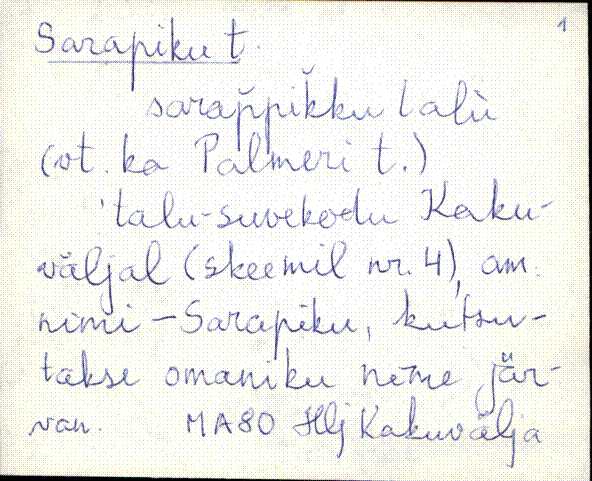 1
Sarapiku t.
sarap̆pik̆ku talù
(vt. ka Palmeri t.)
'talu-suvekodu Kaku-
väljal (skeemil nr. 4), am.
nimi – Sarapiku, kutsu-
takse omaniku nime jär-
van. MA80 Hlj Kakuvälja